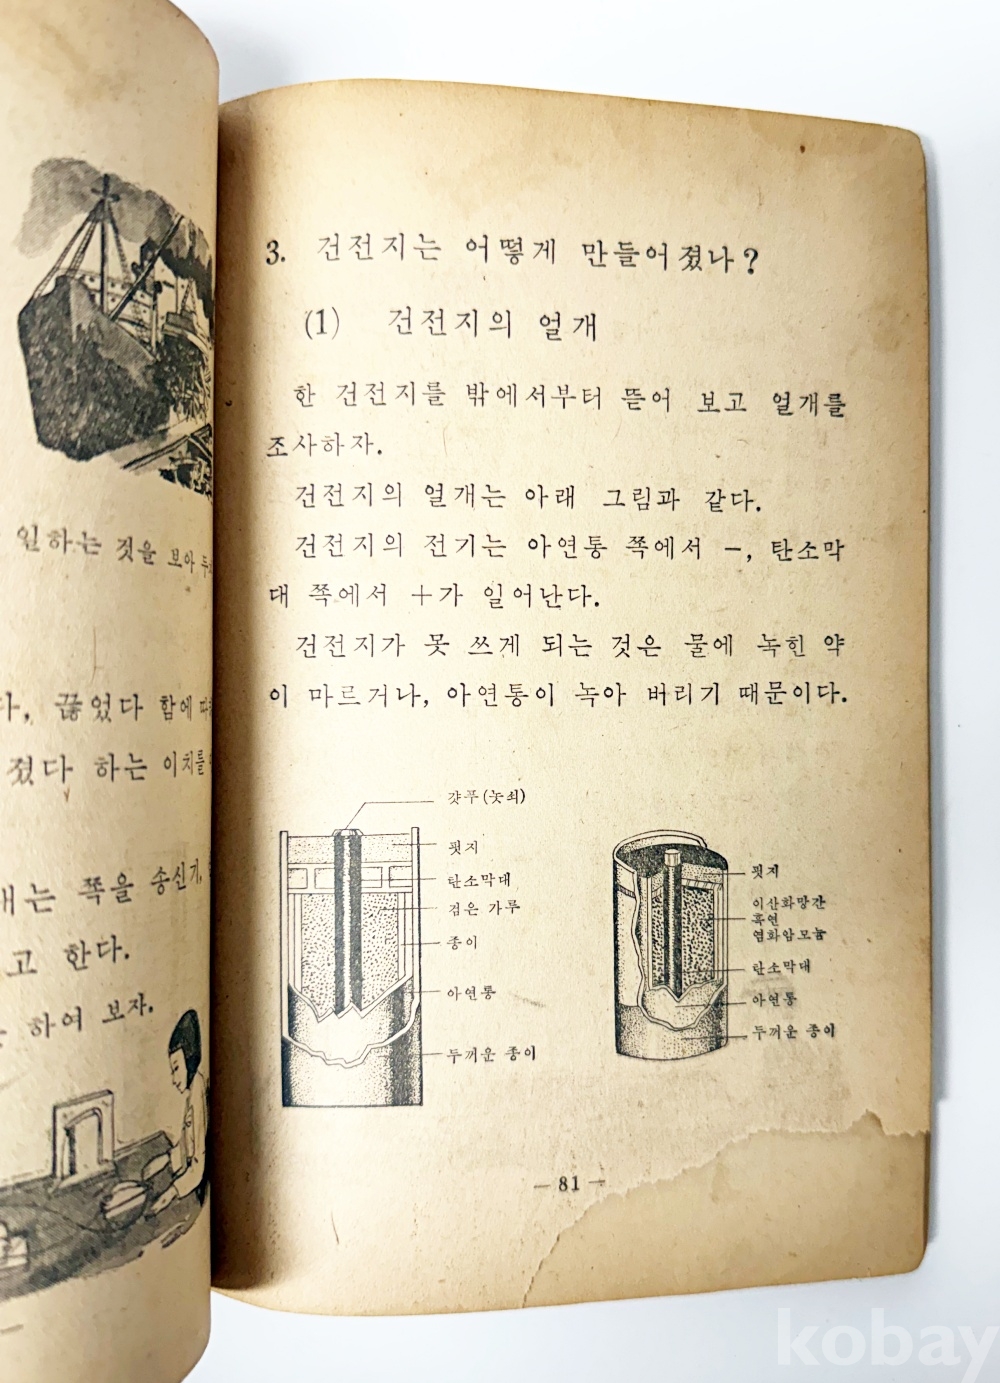 일하는 것을 보아
다, 끊었다 함에
졌다 하는 이치를
내는 쪽을 송신기,
고 한다.
하여 보자.
3. 건전지는 어떻게 만들어졌나?
(1) 건전지의 얼개
한 건전지를 밖에서부터 뜯어 보고 얼개를
조사하자.
건전지의 얼개는 아래 그림과 같다.
건전지의 전기는 아연통 쪽에서 −, 탄소막
대 쪽에서 +가 일어난다.
건전지가 못 쓰게 되는 것은 물에 녹힌 약
이 마르거나, 아연통이 녹아 버리기 때문이다.
캿푸(놋쇠)
핏지
탄소막대
검은 가루
종이
아연통
두꺼운 종이
핏지
이산화망간
흑연
염화암모늄
탄소막대
아연통
두꺼운 종이
— 81 —
kobay